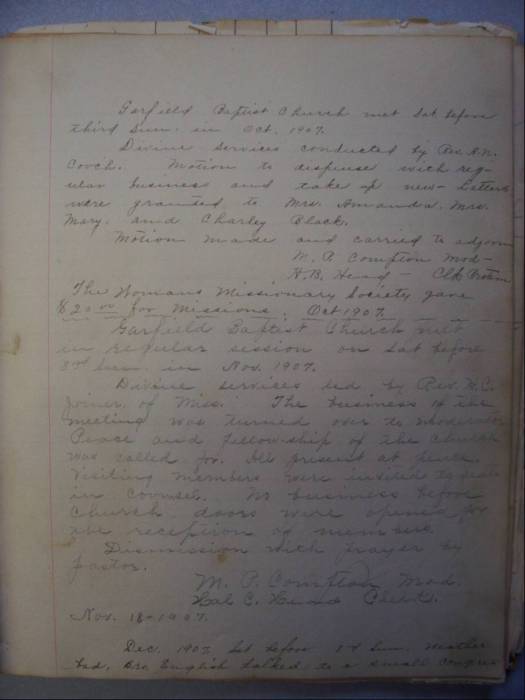 Garfield Baptist Church met Sat before
third Sun. in Oct. 1907.
Divine services conducted by Rev. A.N.
Couch. Motion to dispense with reg-
ular business and take up new - Letters
were granted to Mrs. Amanda. Mrs.
Mary. and Charley Black.
Motion made and carried to adjourn
M. P. Compton Mod -
H.B. Head - Clk Protem
The Womans Missionary Society gave
$20.00 for Missions. Oct 1907.
Garfield Baptist Church met
in regular session on Sat before
3rd Sun. in Nov. 1907.
Divine services led by Rev. W.C.
Joiner of Miss. The business of the
meeting was turned over to moderator
Peace and fellowship of the Church
was called for. All present at peace.
Visiting members were invited to seats
in Counsel. No business before
Church doors were opened for
the reception of members
Dismission with prayer by
pastor.
M. P. Compton Mod.
Hal C. Head Clerk.
Nov. 18-1907.
Dec. 1907 Sat before Sun. Weather
bad, Bro. English talked to a small congre